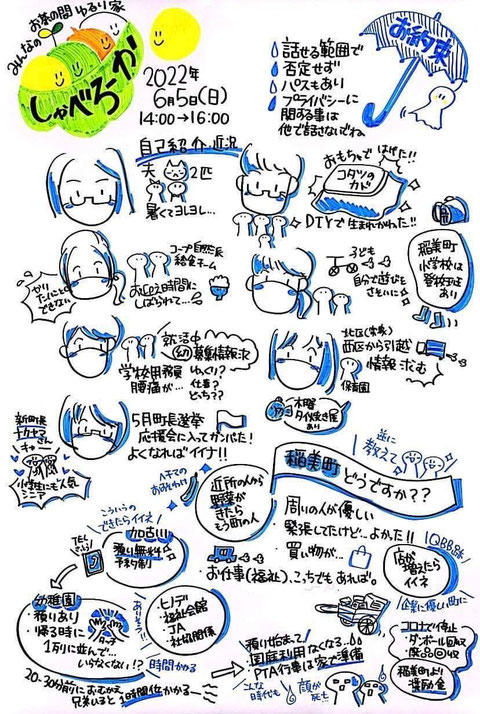 みんなの お茶の間 ゆるり家
しゃべろーか
2022年
6月5日(日)
14:00→16:00
お約束
話せる範囲で
否定せず
パスもあり
プライバシーに
関する事は
他で話さないでね
自己紹介 近況
夫 2匹
暑くてヨレヨレ…
おもちゃで はばた!!
コタツの
カド
DIYで 生まれかわった!!
やり
たいことの
できない
給食チーム
おしごと時間に
しばられて…
子ども
自分で遊びを
稲美町
小学校は
登校班
あり
就活中
幼 募集情報
学校用務員
腰痛が…
ゆっくり?
仕事?
どっち??
北区(実家)
西区から引越
情報求む
保育園
木曜
タイ焼き屋
あり
新町長
ナカヤマさん
小学生にも人気
シニア
5月町長選挙
応援会に入ってガンバた!
よくなればイイナ!!
逆に
教えて
稲美町 どうですか??
近所の人から
野菜が
きたら
もう町の人
周りの人が優しい
緊張してたけど…よかった!!
買い物が…
お仕事(福祉)、こっちでもあれば。
店が
増えたら
イイネ
企業に優しい町に
こういうの
できたらイイネ
加古川
預り無料
予約制
TEL
幼稚園
預りあり
帰る時に
1列に並んで…
いらなくない!?
タッチ
ありそう!!
ヒノデ
福祉会館
JA
社協関係
時間かかる
20-30分前におむかえ
兄弟いると1時間位かかる
預り始まって
園庭利用なくなる…
PTA行事は家で準備
こんな
時代も
顔が
死も…
コロナで停止
ダンボール回収
廃品回収
稲美町より
奨励金